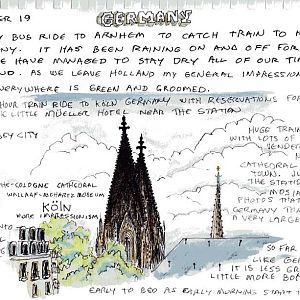 ER 19
GERMANY
Y BUS RIDE TO ARNHEM TO CATCH TRAIN TO K
NY. IT HAS BEEN RAINING ON AND OFF FOR
E HAVE MANAGED TO STAY DRY ALL OF OUR TI
ND. AS WE LEAVE HOLLAND MY GENERAL IMPRESSION
EVERYWHERE IS GREEN AND GROOMED.
HOUR TRAIN RIDE TO KÖLN GERMANY WITH RESERVATIONS FOR
E LITTLE MÜELLER HOTEL NEAR THE STATION
EY CITY
HE COLOGNE CATHEDRAL
WALLRAF-RICHARTZ MUSEUM
KÖLN
MORE IMPRESSIONISM
HUGE TRAIN
WITH LOTS OF
VENDER
CATHEDRAL
TOWN. JU
THE STATIO
WINDS
PHOTOS THA
GERMANY TOW
A VERY LARGE
SO FAR
LIKE GER
IT IS LESS GR
LITTLE MORE BO
EARLY TO BED AS EARLY MORNING START T